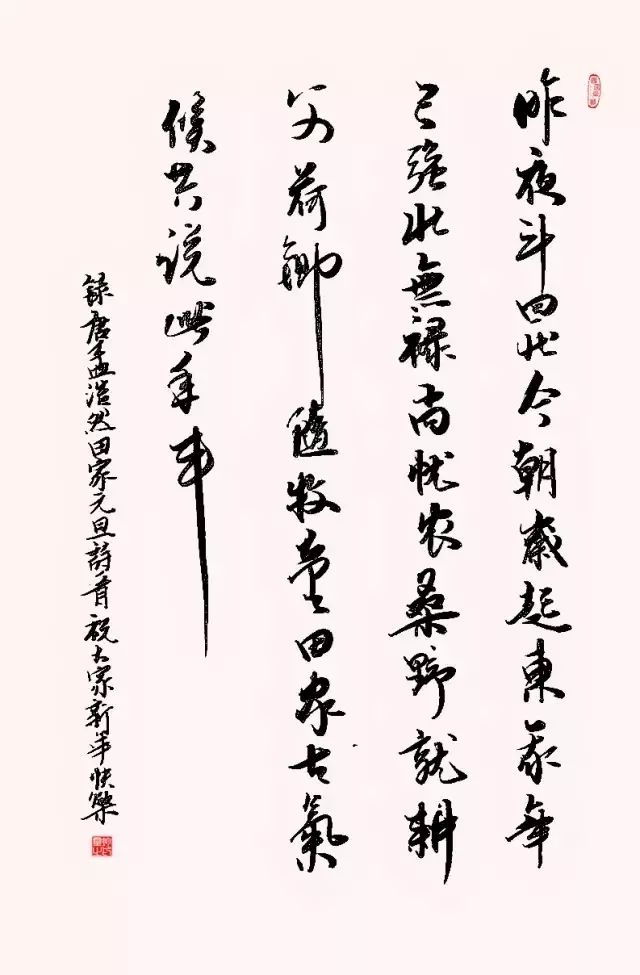 昨夜斗回北今朝歲起東我年
已強壯無祿尚忧农桑野就耕
父荷鋤隨牧童田家占氣
候共説此年丰
錄唐孟浩然田家元旦詩一首祝大家新年快樂